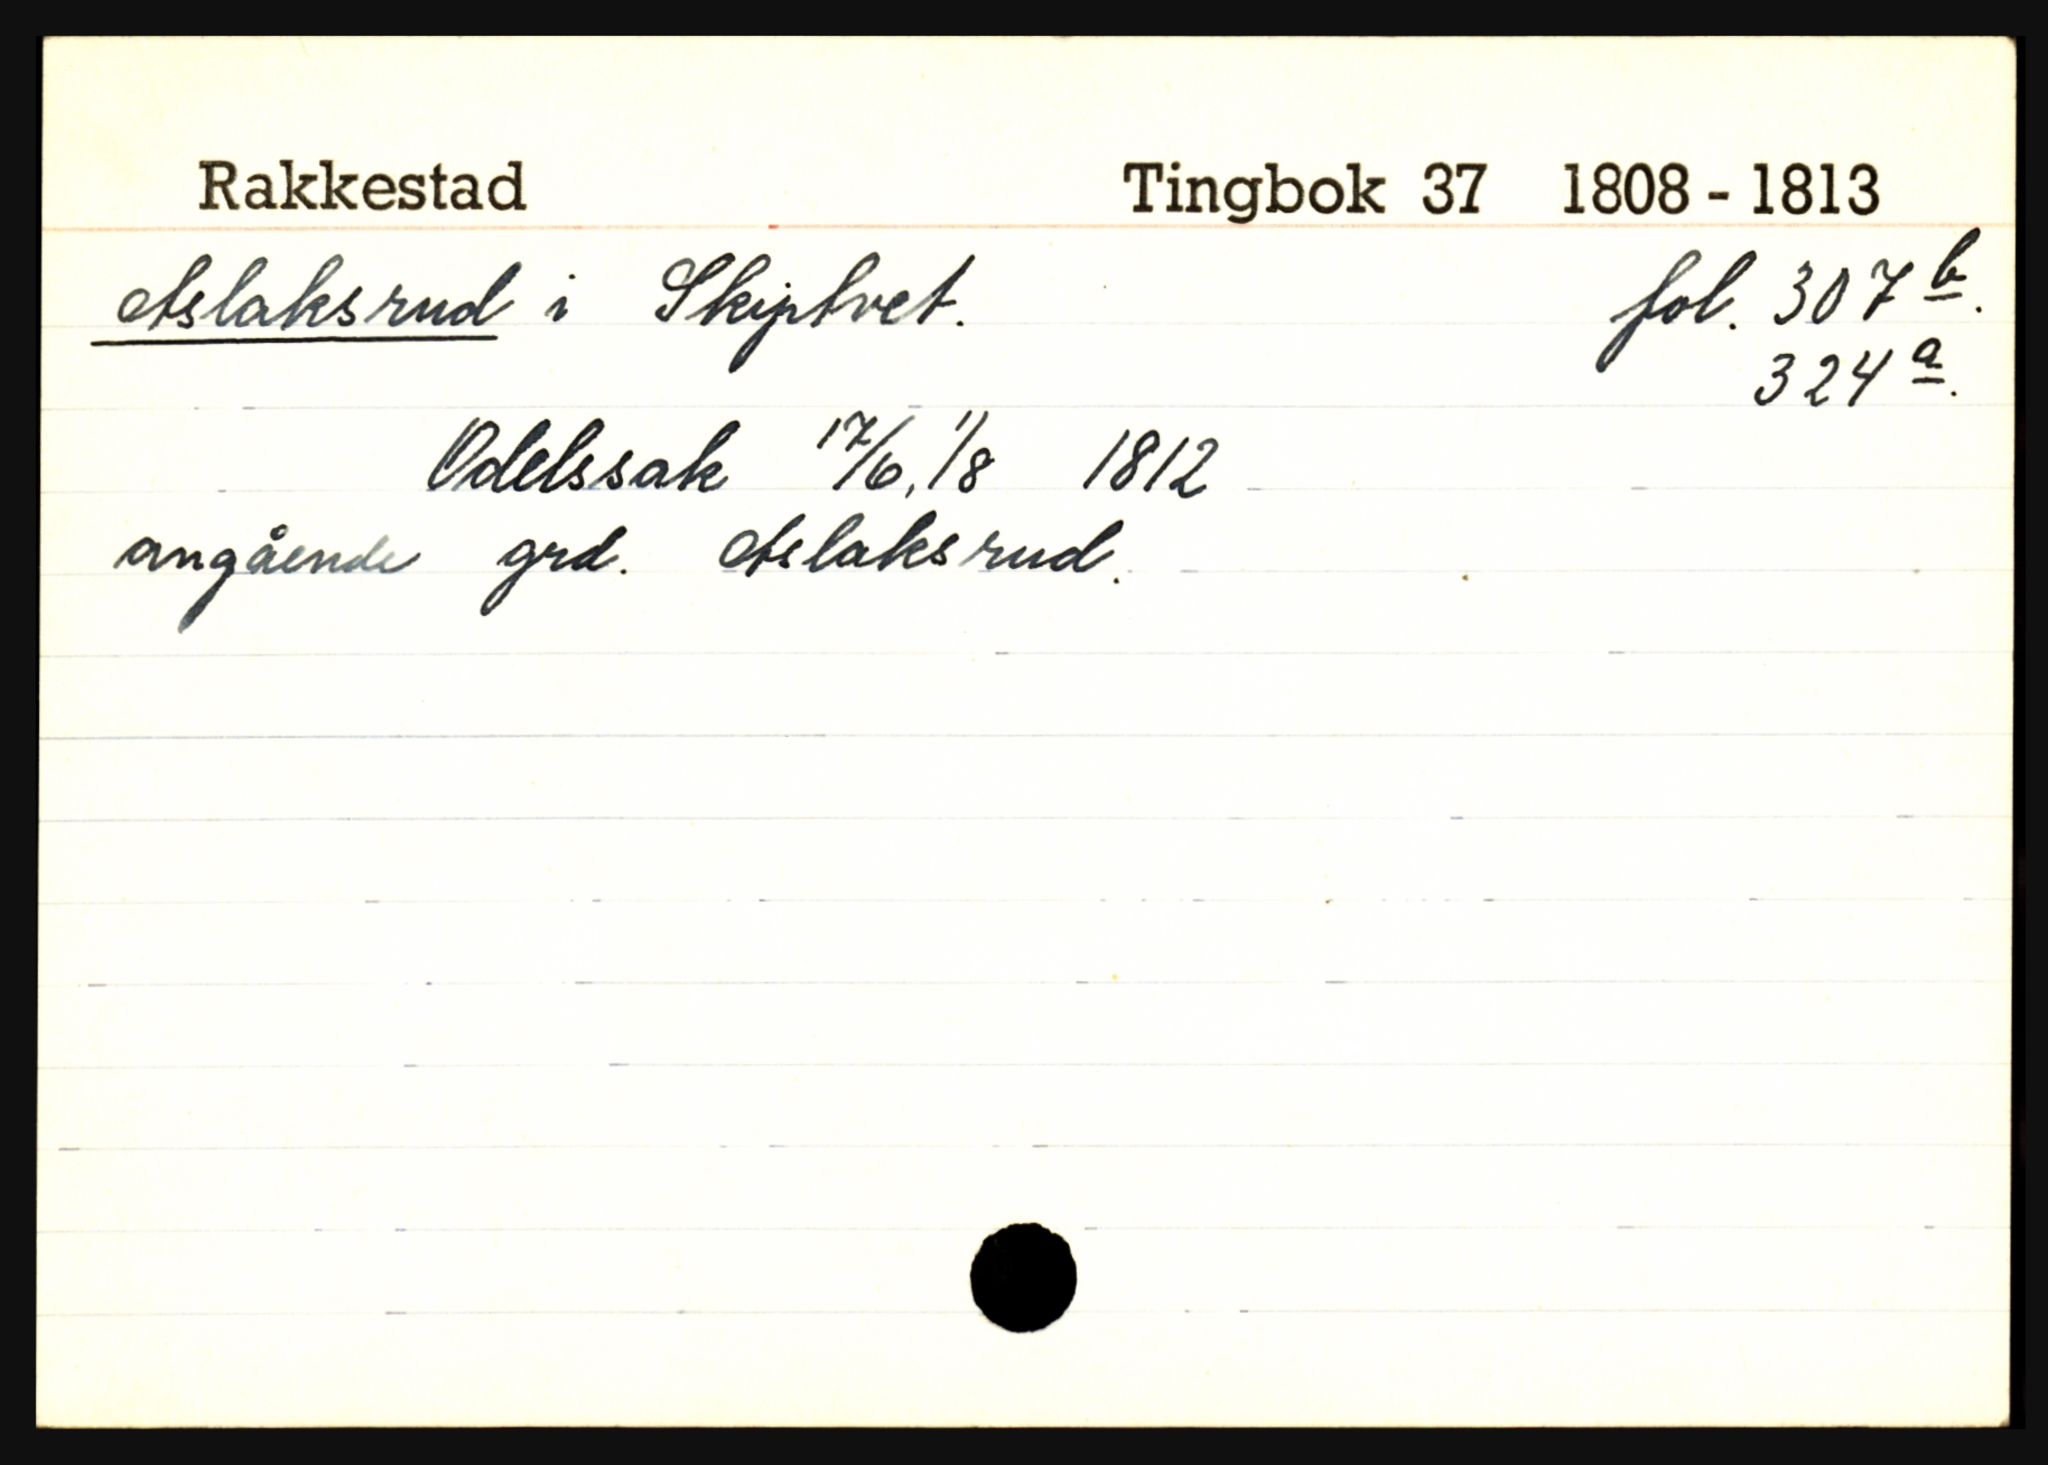 Rakkestad Tingbok 37 1808 - 1813
Aslaksrud i Skiptvet. fol. 307 b.
324 a.
Odelssak 17/6, 1/8 1812
angående grd. Aslaksrud.